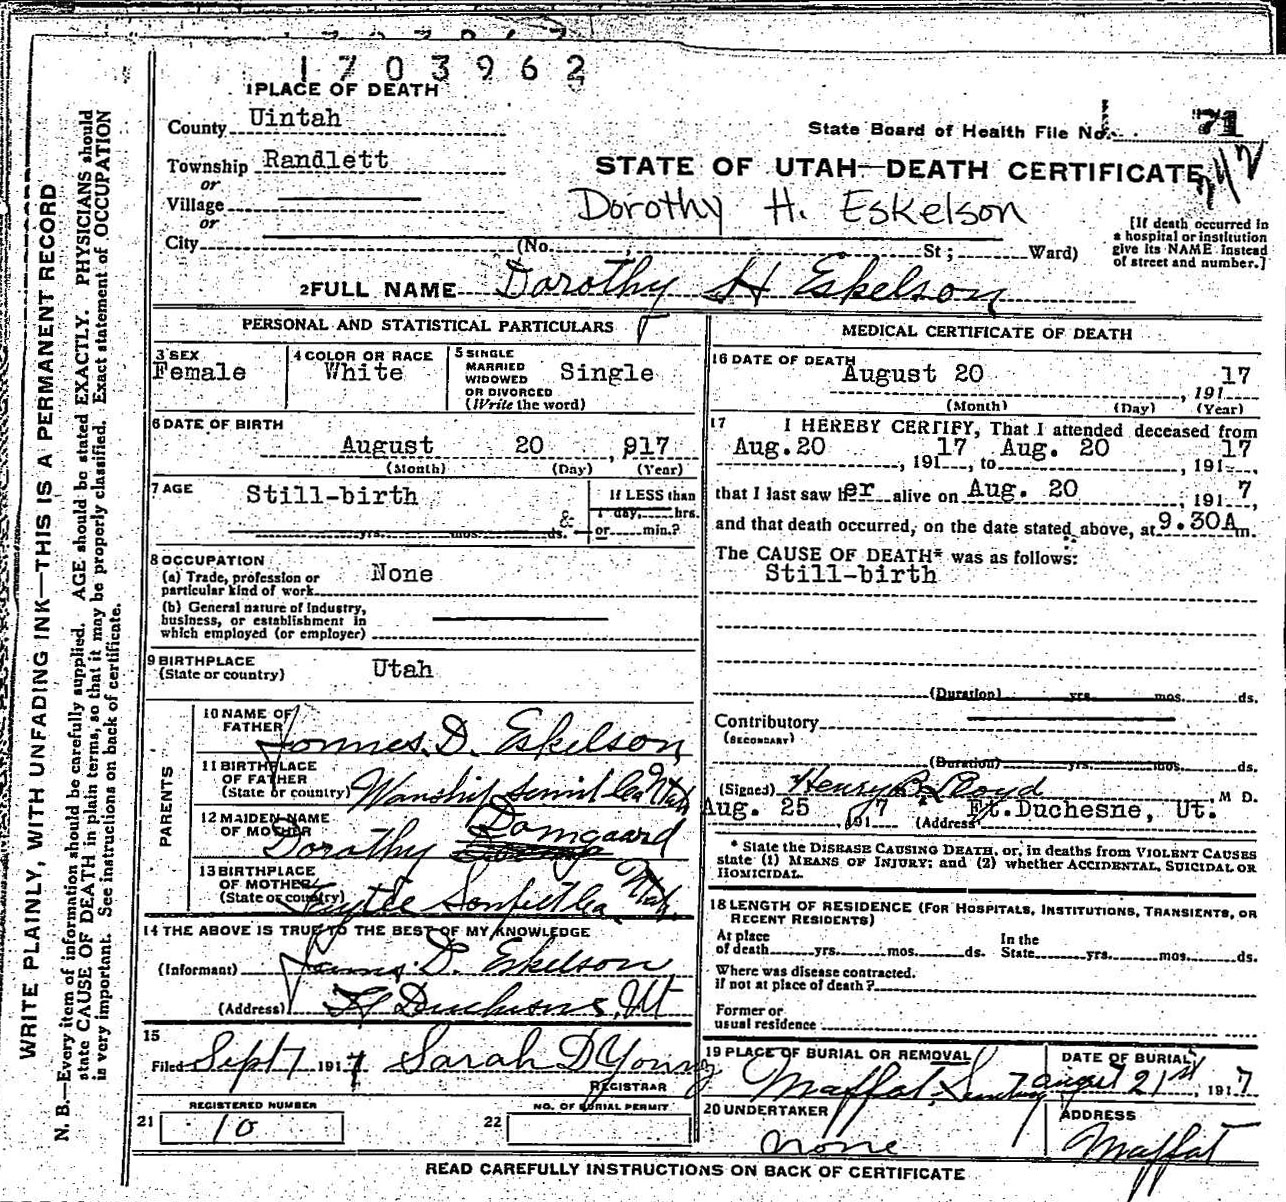 1703962
1 PLACE OF DEATH
County Uintah
State Board of Health File No. 71
Township Randlett
STATE OF UTAH—DEATH CERTIFICATE
or
Village
Dorothy H. Eskelson
or
City (No. St; Ward)
[If death occurred in
a hospital or institution
give its NAME instead
of street and number.]
2 FULL NAME Dorothy H Eskelson
PERSONAL AND STATISTICAL PARTICULARS
3 SEX
Female
4 COLOR OR RACE
White
5 SINGLE
MARRIED
WIDOWED
OR DIVORCED
(Write the word)
Single
6 DATE OF BIRTH
August 20, 917
(Month) (Day) (Year)
7 AGE
Still-birth
yrs. mos. ds.
If LESS than
1 day, hrs.
& or min.?
8 OCCUPATION
(a) Trade, profession or
particular kind of work
None
(b) General nature of industry,
business, or establishment in
which employed (or employer)
9 BIRTHPLACE
(State or country)
Utah
PARENTS
10 NAME OF
FATHER
D. Eskelson
11 BIRTHPLACE
OF FATHER
(State or country)
Wanship Utah
12 MAIDEN NAME
OF MOTHER
Dorothy Domgaard
13 BIRTHPLACE
OF MOTHER
(State or country)
Utah
14 THE ABOVE IS TRUE TO THE BEST OF MY KNOWLEDGE
(Informant) James D. Eskelson
(Address) Ft Duchesne, Ut
15
Filed Sept 7 1917 Sarah D Young
REGISTRAR
21
REGISTERED NUMBER
10
22
NO. OF BURIAL PERMIT
MEDICAL CERTIFICATE OF DEATH
16 DATE OF DEATH
August 20, 191 17
(Month) (Day) (Year)
17 I HEREBY CERTIFY, That I attended deceased from
Aug. 20, 191 17, to Aug. 20, 191 17,
that I last saw her alive on Aug. 20, 1917,
and that death occurred, on the date stated above, at 9.30A m.
The CAUSE OF DEATH* was as follows:
Still-birth
(Duration) yrs. mos. ds.
Contributory
(SECONDARY)
(Duration) yrs. mos. ds.
(Signed) Henry B. Lloyd, M D.
Aug. 25 1917 (Address Ft.Duchesne, Ut.
* State the DISEASE CAUSING DEATH, or, in deaths from VIOLENT CAUSES
state (1) MEANS OF INJURY; and (2) whether ACCIDENTAL, SUICIDAL OR
HOMICIDAL.
18 LENGTH OF RESIDENCE (FOR HOSPITALS, INSTITUTIONS, TRANSIENTS, OR
RECENT RESIDENTS)
At place
of death yrs. mos. ds.
In the
State yrs. mos. ds.
Where was disease contracted.
if not at place of death?
Former or
usual residence
19 PLACE OF BURIAL OR REMOVAL
Maffat
DATE OF BURIAL
August 21st, 1917
20 UNDERTAKER
none
ADDRESS
Maffat
READ CAREFULLY INSTRUCTIONS ON BACK OF CERTIFICATE
WRITE PLAINLY, WITH UNFADING INK—THIS IS A PERMANENT RECORD
N. B.—Every item of information should be carefully supplied. AGE should be stated EXACTLY. PHYSICIANS should
state CAUSE OF DEATH in plain terms, so that it may be properly classified. Exact statement of OCCUPATION
is very important. See instructions on back of certificate.